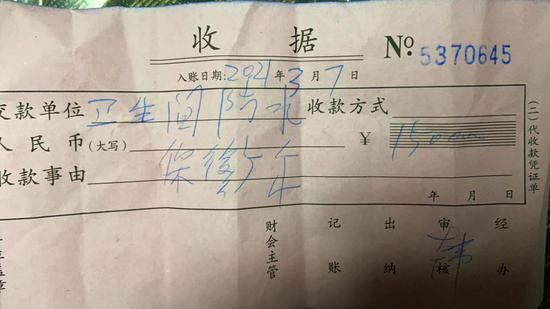 收据
№ 5370645
入账日期:2021年3月7日
交款单位 卫生间防水 收款方式
人民币(大写) ¥ 1500
收款事由 保修5年
年 月 日
财会主管 记账 出纳 审核 经办
(二)代收款凭证单